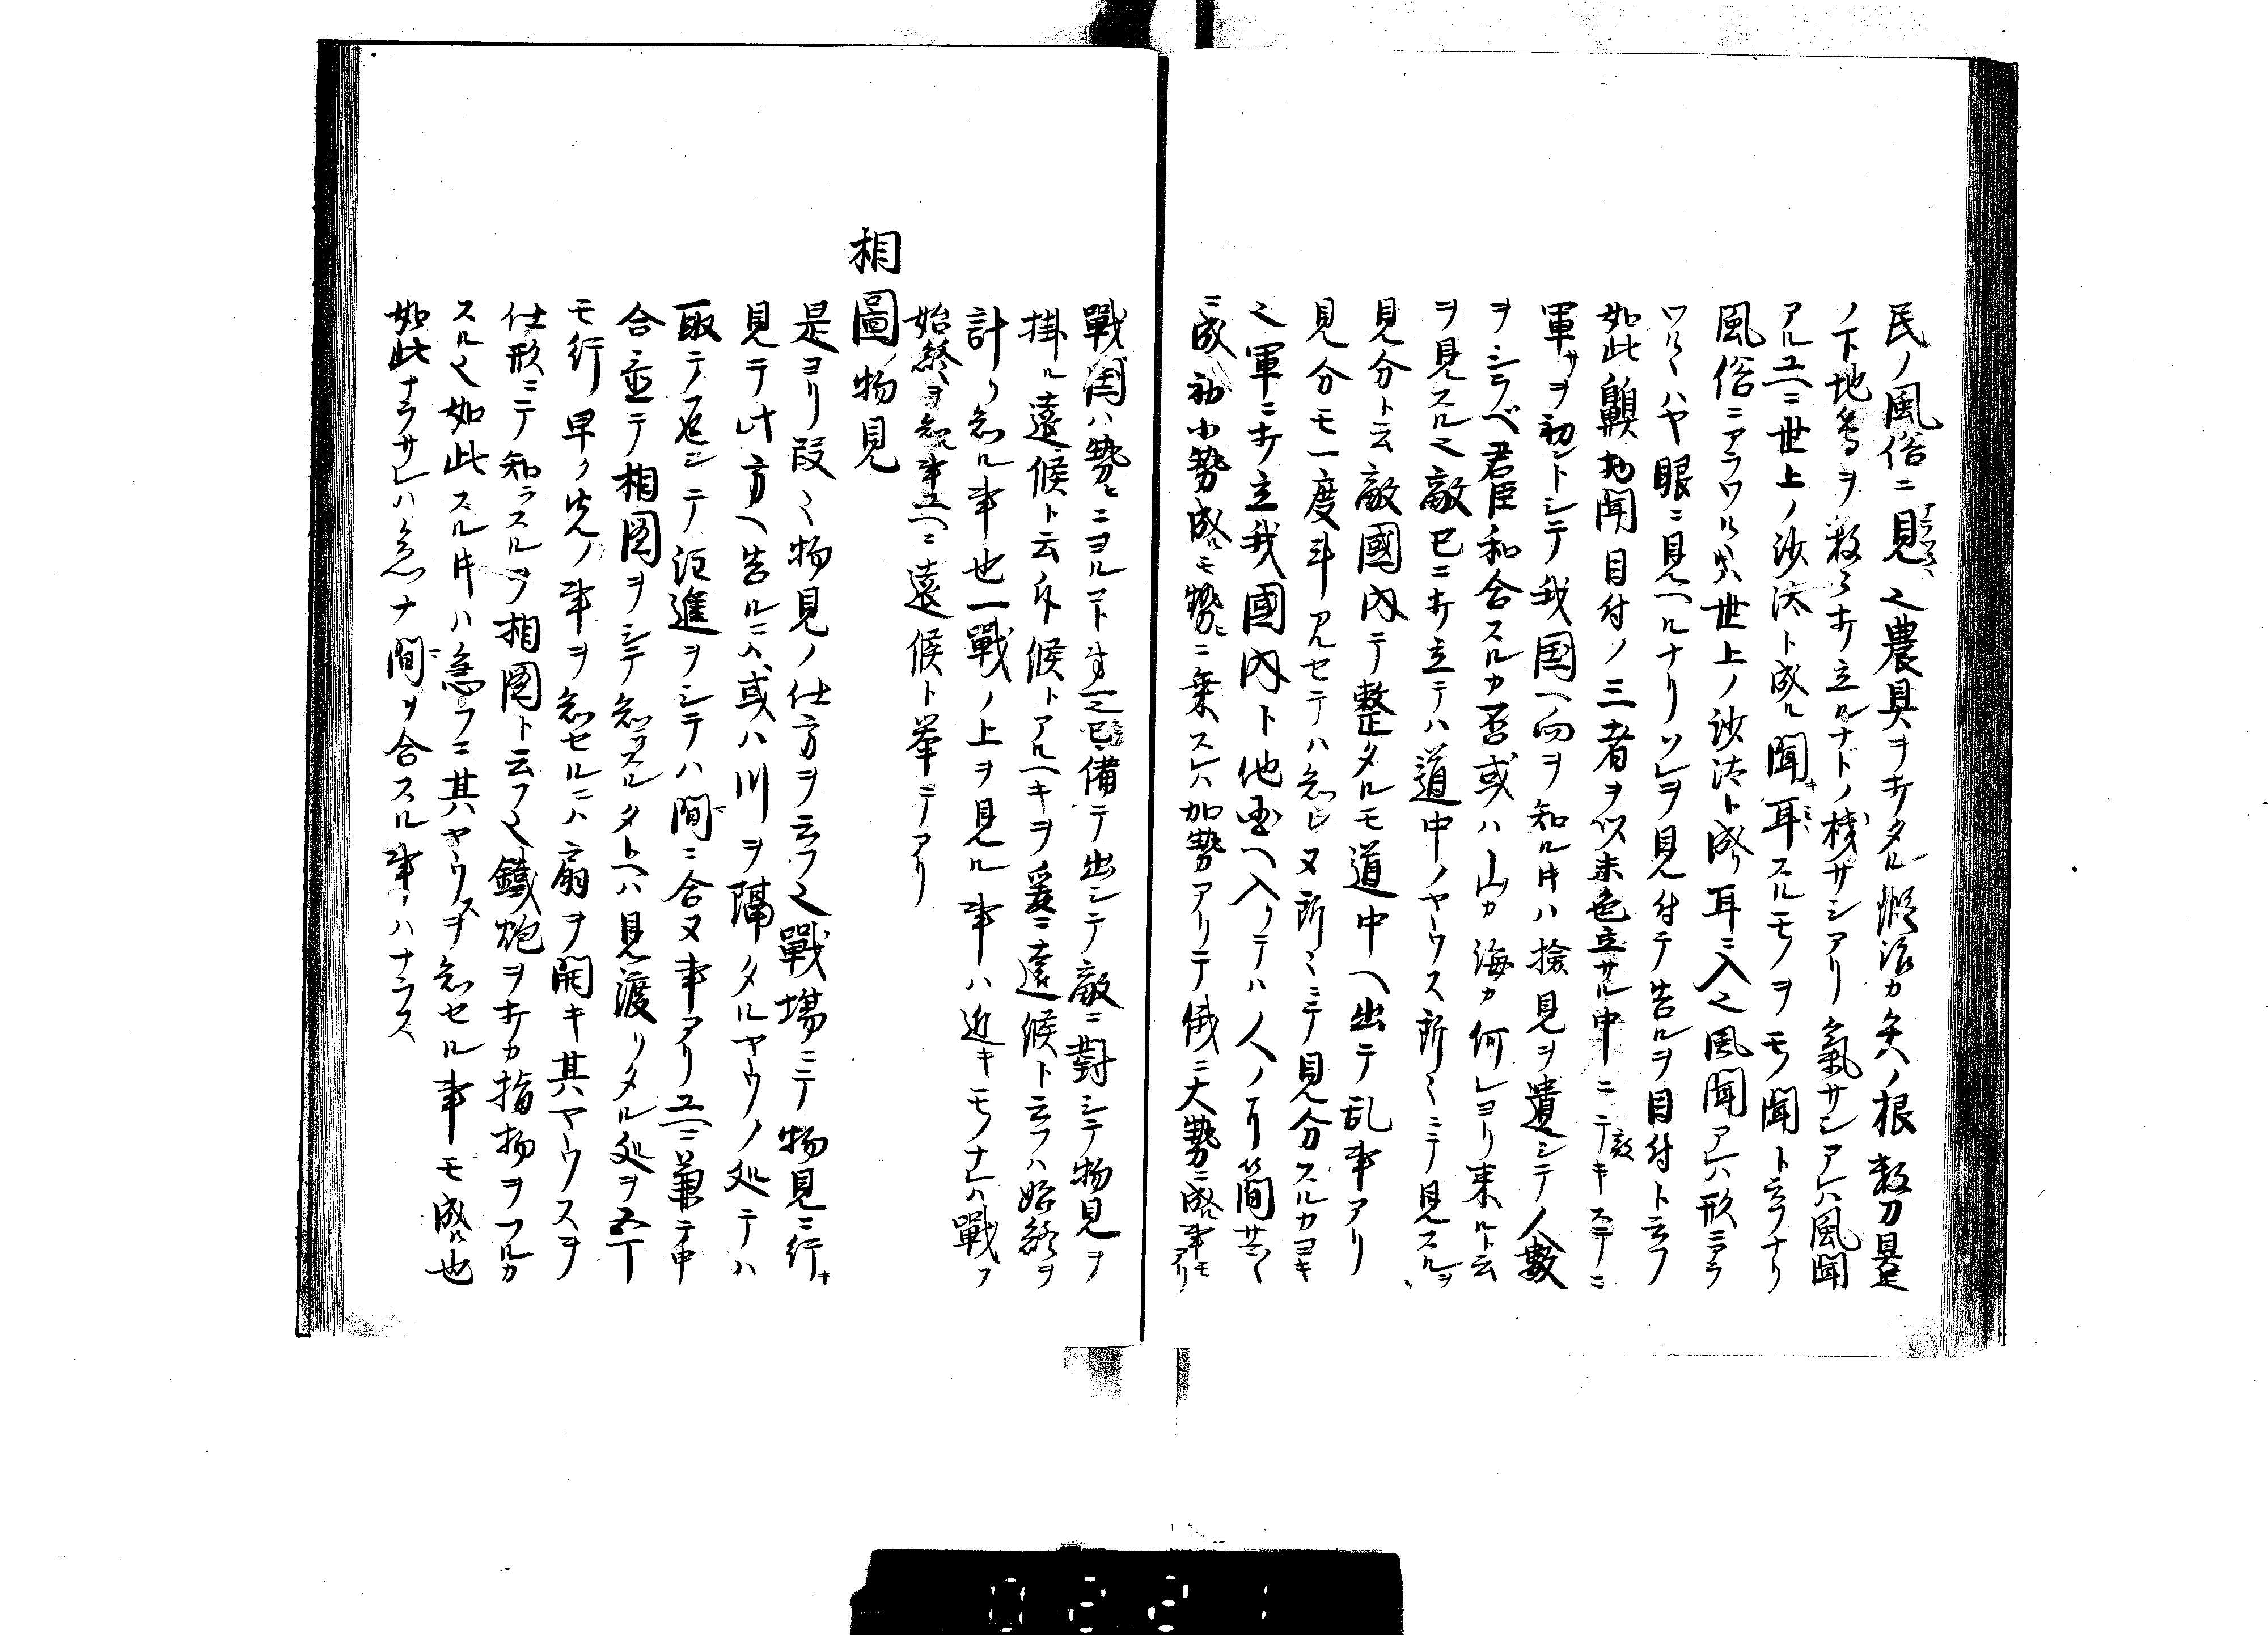 民ノ風俗ニ見之農具ヲ打タル鍛冶カ矢ノ根数刀具足
ノ下地ヲ数多打立ルナドノ機サシアリ氣サシアレハ風聞
アルユヘニ世上ノ沙汰ト成ル聞耳スルモノヲモノ聞ト云フナリ
風俗ニアラワレ世上ノ沙汰ト成リ耳ニ入之風聞アレハ形ニアラ
ワレハヤ眼ニ見ヘルナリソレヲ見付テ告ルヲ目付ト云フ
如此聞目付ノ三者ヲ以未色立サル中ニテ敵キステニ
軍サヲ初ントシテ我国ヘ向ヲ知ル時ハ撿見ヲ遣シテ人數
ヲシラベ君臣和合スルカ否或ハ山カ海カ何レヨリ来ルト云
ヲ見スル之敵已ニ打立テハ道中ノヤウス所々ニテ見スルヲ
見分ト云敵國内テ整タルモ道中ヘ出テ乱事アリ
見分モ一度斗アルセテハ知レ又所々ニテ見分スルカヨキ
之軍ニ打立我國内ト他国ヘ入リテハ人ノ
ニ成初小勢成ルモ勢ニ乗スレハ加勢アリテ俄ニ大勢ニ成事モアリ
戰ハ勢ニヨル備テ出シテ敵ニ對シテ物見ヲ
掛ル遠候ト云斥候トアルヘキヲ爰ニ遠候ト云フハ始終ヲ
計リ知ル事也一戰ノ上ヲ見ル事ハ近キモノナレハ戰フ
始終ヲ知事ユヘニ遠候ト挙テアリ
相圖ノ物見
是ヨリ段々物見ノ仕方ヲ云フ之戰塲ニテ物見ニ行キ
見テ此方ヘ告ルニハ或ハ川ヲ隔タルヤウノ処テハ
取テ返シテ注進ヲシテハ間ニ合ヌ事アリユヘニ兼テ申
合置テ相図ヲシテ知ラスルタトヘハ見渡リタル処ヲ
モ行早ク先ノ事ヲ知セルニハ扇ヲ開キ其ヤウスヲ
仕形ニテ知ラスルヲ相図ト云フ之鐵炮ヲ打カ指物ヲフルカ
スル之如此スル時ハ急フニ其ヤウスヲ知セル事モ成ル也
如此ナラサレハ急ナ間ヲ合スル事ハナラス